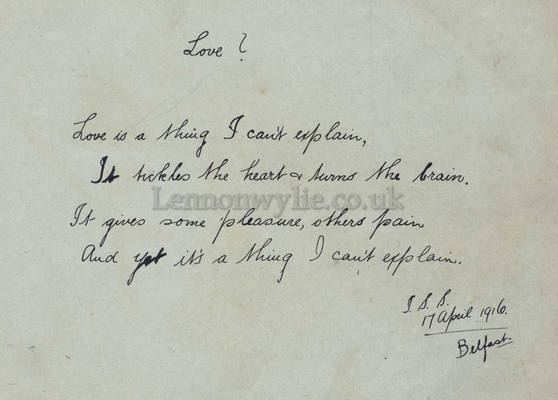 Love?
Love is a thing I can't explain,
It tickles the heart & turns the brain.
Lennonwylie.co.uk
It gives some pleasure, others pain
And yet it's a thing I can't explain.
J. S. S.
17 April 1916.
Belfast.